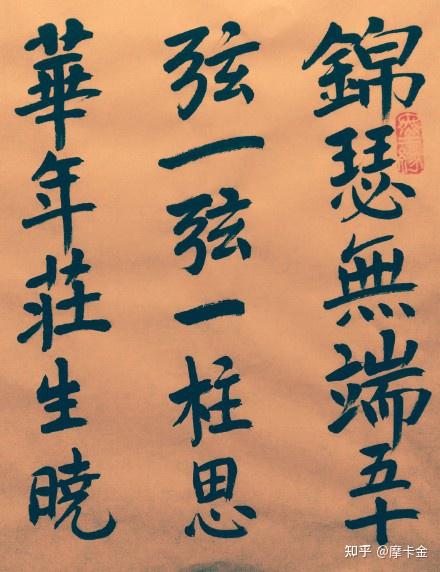 錦瑟無端五十
弦一弦一柱思
華年莊生曉
知乎 @摩卡金